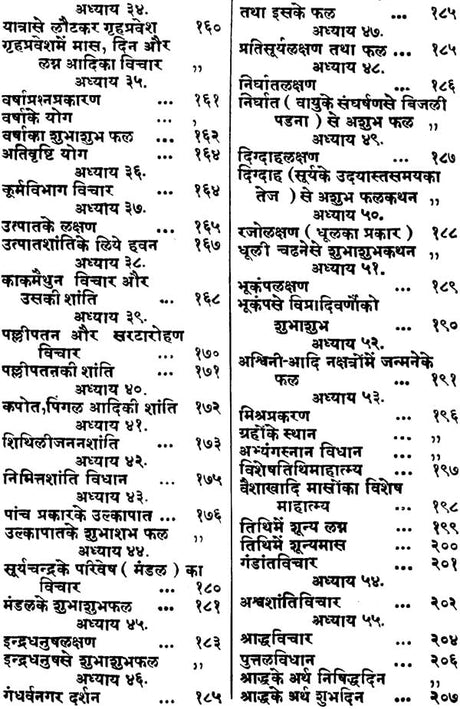 अध्याय ३४.
यात्रासे लौटकर गृहप्रवेश १६०
गृहप्रवेशमें मास, दिन और
लग्न आदिका विचार ,,
अध्याय ३५.
वर्षाप्रश्नप्रकारण ... १६१
वर्षाके योग ... ,
वर्षाका शुभाशुभ फल ... १६२
अतिवृष्टि योग ... १६४
अध्याय ३६.
कूर्मविभाग विचार ... १६४
अध्याय ३७.
उत्पातके लक्षण ... १६५
उत्पातशांतिके लिये हवन १६७
अध्याय ३८.
काकमैथुन विचार और
उसकी शांति ... १६८
अध्याय ३९.
पल्लीपतन और सरटारोहण
विचार ... १७०
पल्लीपतनकी शांति ... १७१
अध्याय ४०.
कपोत,पिंगल आदिकी शांति १७२
अध्याय ४१.
शिथिलीजननशांति ... १७३
अध्याय ४२.
निमित्तशांति विधान ... १७५
अध्याय ४३.
पांच प्रकारके उल्कापात ... १७६
उल्कापातके शुभाशभ फल ,,
अध्याय ४४.
सूर्यचन्द्रके परिवेष ( मंडल ) का
विचार ... १८०
मंडलके शुभाशुभफल ... १८१
अध्याय ४५.
इन्द्रधनुषलक्षण ... १८३
इन्द्रधनुषसे शुभाशुभफल ,,
अध्याय ४६.
गंधर्वनगर दर्शन ... १८५
तथा इसके फल ... १८५
अध्याय ४७.
प्रतिसूर्यलक्षण तथा फल ... १८५
अध्याय ४८.
निर्घातलक्षण ... १८६
निर्घात ( वायुके संघर्षणसे बिजली
पडना ) से अशुभ फल ,,
अध्याय ४९.
दिग्दाहलक्षण ... १८७
दिग्दाह (सूर्यके उदयास्तसमयका
तेज ) से अशुभ फलकथन ,,
अध्याय ५०.
रजोलक्षण ( धूलका प्रकार ) १८८
धूली चढनेसे शुभाशुभकथन ,,
अध्याय ५१.
भूकंपलक्षण ... १८९
भूकंपसे विप्रादिवर्णोको
शुभाशुभ ... १९०
अध्याय ५२.
अश्विनी-आदि नक्षत्रोंमें जन्मनेके
फल ... १९१
अध्याय ५३.
मिश्रप्रकरण ... १९६
ग्रहोंके स्थान ... ,,
अभ्यंगस्नान विधान ... ,,
विशेषतिथिमाहात्म्य ... १९७
वैशाखादि मासोंका विशेष
माहात्म्य ... १९८
तिथिमें शून्य लग्न ... १९९
तिथिमें शून्यमास ... २००
गंडांतविचार ... २०१
अध्याय ५४.
अश्वशांतिविचार ... २०२
अध्याय ५५.
श्राद्धविचार ... २०४
पुत्तलविधान ... २०५
श्राद्धके अर्थ निषिद्धदिन ,,
श्राद्धके अर्थ शुभदिन ... २०६